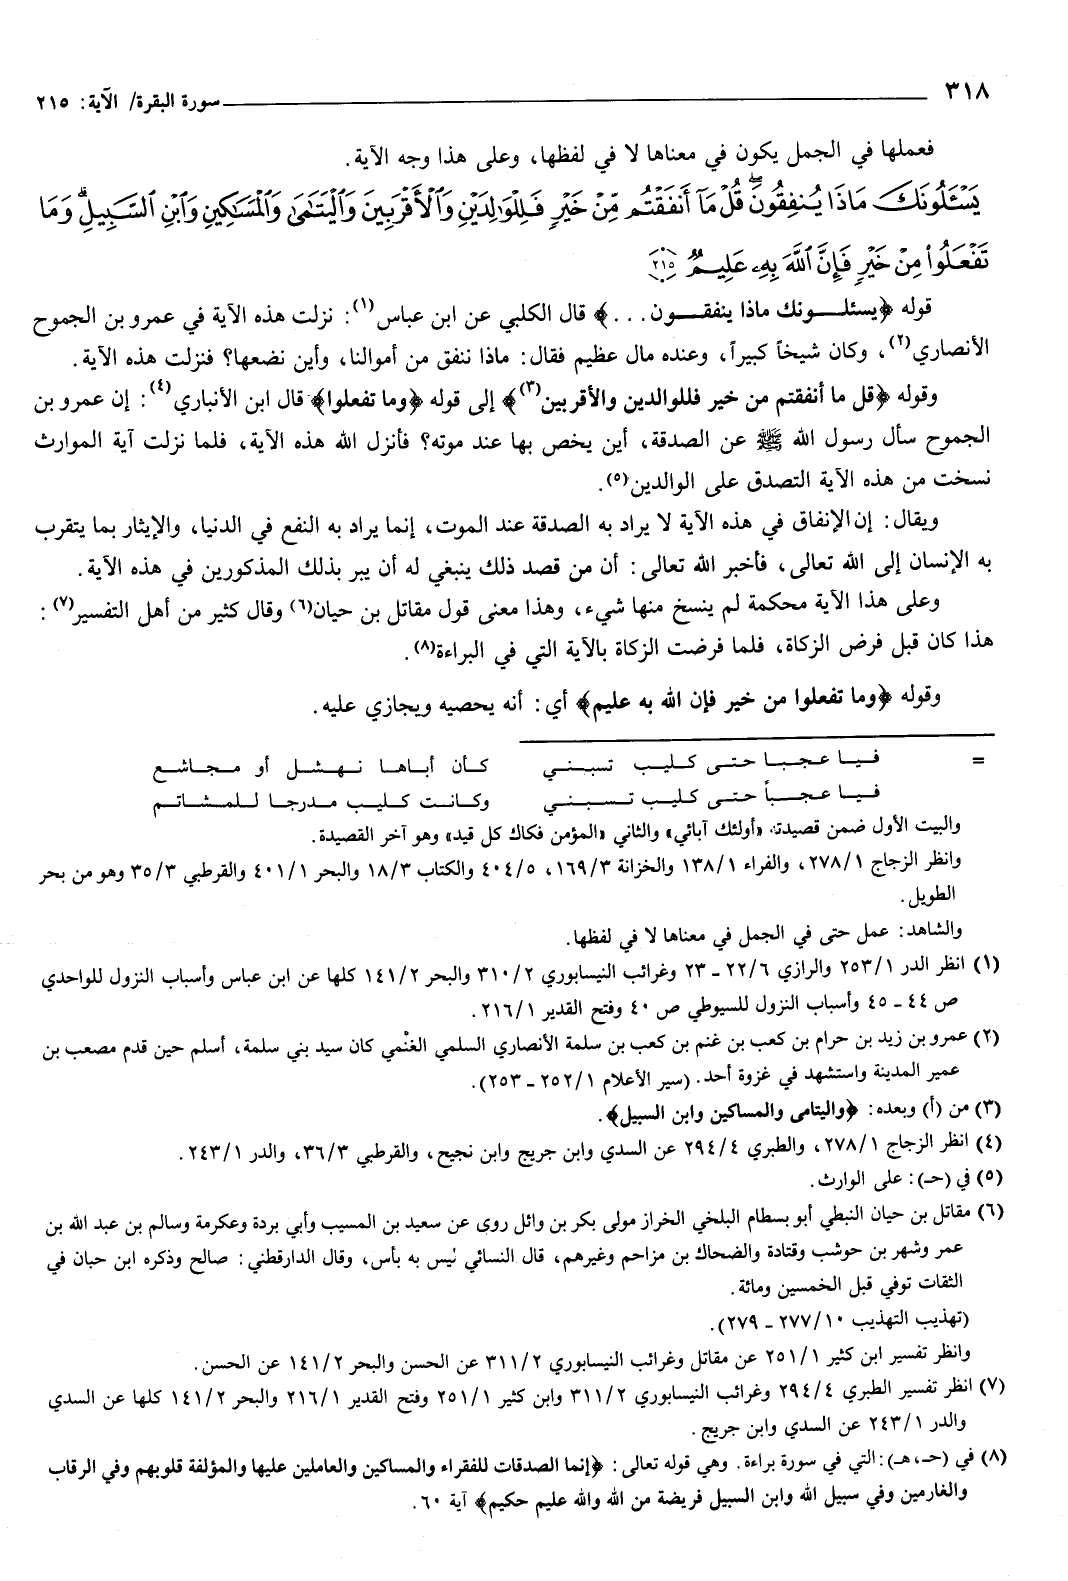 ٣١٨ سورة البقرة/ الآية: ٢١٥
فعملها في الجمل يكون في معناها لا في لفظها، وعلى هذا وجه الآية.
يَسْـَٔلُونَكَ مَاذَا يُنفِقُونَ ۖ قُلْ مَآ أَنفَقْتُم مِّنْ خَيْرٍ فَلِلْوَٰلِدَيْنِ وَٱلْأَقْرَبِينَ وَٱلْيَتَٰمَىٰ وَٱلْمَسَٰكِينِ وَٱبْنِ ٱلسَّبِيلِ ۗ وَمَا
تَفْعَلُوا۟ مِنْ خَيْرٍ فَإِنَّ ٱللَّهَ بِهِۦ عَلِيمٌ ٢١٥
قوله ﴿يسئلونك ماذا ينفقون...﴾ قال الكلبي عن ابن عباس(١): نزلت هذه الآية في عمرو بن الجموح
الأنصاري(٢)، وكان شيخاً كبيراً، وعنده مال عظيم فقال: ماذا ننفق من أموالنا، وأين نضعها؟ فنزلت هذه الآية.
وقوله ﴿قل ما أنفقتم من خير فللوالدين والأقربين(٣)﴾ إلى قوله ﴿وما تفعلوا﴾ قال ابن الأنباري(٤): إن عمرو بن
الجموح سأل رسول الله ﷺ عن الصدقة، أين يخص بها عند موته؟ فأنزل الله هذه الآية، فلما نزلت آية الموارث
نسخت من هذه الآية التصدق على الوالدين(٥).
ويقال: إن الإنفاق في هذه الآية لا يراد به الصدقة عند الموت، إنما يراد به النفع في الدنيا، والإيثار بما يتقرب
به الإنسان إلى الله تعالى، فأخبر الله تعالى: أن من قصد ذلك ينبغي له أن يبر بذلك المذكورين في هذه الآية.
وعلى هذا الآية محكمة لم ينسخ منها شيء، وهذا معنى قول مقاتل بن حيان(٦) وقال كثير من أهل التفسير(٧):
هذا كان قبل فرض الزكاة، فلما فرضت الزكاة بالآية التي في البراءة(٨).
وقوله ﴿وما تفعلوا من خير فإن الله به عليم﴾ أي: أنه يحصيه ويجازي عليه.
= فيا عجبا حتى كليب تسبني كأن أباها نهشل أو مجاشع
فيا عجباً حتى كليب تسبني وكانت كليب مدرجا للمشاتم
والبيت الأول ضمن قصيدته «أولئك آبائي» والثاني «المؤمن فكاك كل قيد» وهو آخر القصيدة.
وانظر الزجاج ٢٧٨/١، والفراء ١٣٨/١ والخزانة ١٦٩/٣، ٤٠٤/٥ والكتاب ١٨/٣ والبحر ٤٠١/١ والقرطبي ٣٥/٣ وهو من بحر
الطويل.
والشاهد: عمل حتى في الجمل في معناها لا في لفظها.
(١) انظر الدر ٢٥٣/١ والرازي ٢٢/٦ ـ ٢٣ وغرائب النيسابوري ٣١٠/٢ والبحر ١٤١/٢ كلها عن ابن عباس وأسباب النزول للواحدي
ص ٤٤ ـ ٤٥ وأسباب النزول للسيوطي ص ٤٠ وفتح القدير ٢١٦/١.
(٢) عمرو بن زيد بن حرام بن كعب بن غنم بن كعب بن سلمة الأنصاري السلمي الغنْمي كان سيد بني سلمة، أسلم حين قدم مصعب بن
عمير المدينة واستشهد في غزوة أحد. (سير الأعلام ٢٥٢/١ ـ ٢٥٣).
(٣) من (أ) وبعده: ﴿واليتامى والمساكين وابن السبيل﴾.
(٤) انظر الزجاج ٢٧٨/١، والطبري ٢٩٤/٤ عن السدي وابن جريج وابن نجيح، والقرطبي ٣٦/٣، والدر ٢٤٣/١.
(٥) في (حـ): على الوارث.
(٦) مقاتل بن حيان النبطي أبو بسطام البلخي الخراز مولى بكر بن وائل روى عن سعيد بن المسيب وأبي بردة وعكرمة وسالم بن عبد الله بن
عمر وشهر بن حوشب وقتادة والضحاك بن مزاحم وغيرهم، قال النسائي ليس به بأس، وقال الدارقطني: صالح وذكره ابن حبان في
الثقات توفي قبل الخمسين ومائة.
(تهذيب التهذيب ٢٧٧/١٠ ـ ٢٧٩).
وانظر تفسير ابن كثير ٢٥١/١ عن مقاتل وغرائب النيسابوري ٣١١/٢ عن الحسن والبحر ١٤١/٢ عن الحسن.
(٧) انظر تفسير الطبري ٢٩٤/٤ وغرائب النيسابوري ٣١١/٢ وابن كثير ٢٥١/١ وفتح القدير ٢١٦/١ والبحر ١٤١/٢ كلها عن السدي
والدر ٢٤٣/١ عن السدي وابن جريج.
(٨) في (حـ، هـ): التي في سورة براءة. وهي قوله تعالى: ﴿إنما الصدقات للفقراء والمساكين والعاملين عليها والمؤلفة قلوبهم وفي الرقاب
والغارمين وفي سبيل الله وابن السبيل فريضة من الله والله عليم حكيم﴾ آية ٦٠.